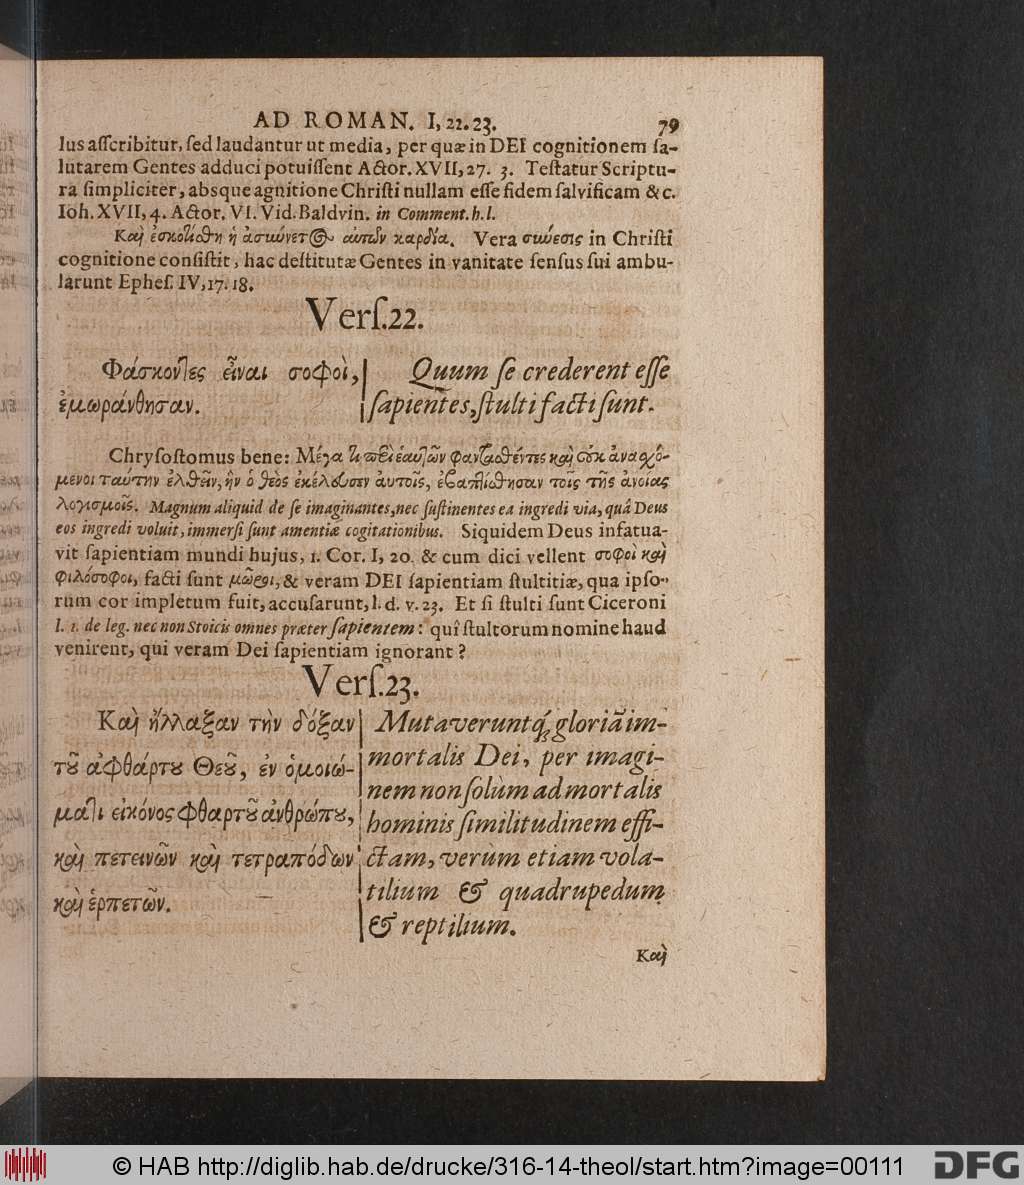 AD ROMAN. I, 22. 23. 79
lus aſſcribitur, ſed laudantur ut media, per quæ in DEI cognitionem ſa-
lutarem Gentes adduci potuiſſent Actor. XVII, 27. 3. Teſtatur Scriptu-
ra ſimpliciter, absque agnitione Chriſti nullam eſſe fidem ſalvificam &c.
Ioh. XVII, 4. Actor. VI. Vid. Baldvin. in Comment. h. l.
Καὶ ἐσκοτίσθη ἡ ἀσύνετος αὐτῶν καρδία. Vera σύνεσις in Chriſti
cognitione conſiſtit, hac deſtitutæ Gentes in vanitate ſenſus ſui ambu-
larunt Epheſ. IV, 17. 18.
Verſ. 22.
Φάσκοντες εἶναι σοφοὶ,
ἐμωράνθησαν.
Quum ſe crederent eſſe
ſapientes, ſtulti facti ſunt.
Chryſoſtomus bene: Μέγα τι περὶ ἑαυτῶν φαντασθέντες καὶ οὐκ ἀνασχό-
μενοι ταύτην ἐλθεῖν, ἣν ὁ θεὸς ἐκέλευσεν ἀυτοῖς, ἐβαπτίσθησαν τοῖς τῆς ἀνοίας
λογισμοῖς. Magnum aliquid de ſe imaginantes, nec ſuſtinentes ea ingredi via, quâ Deus
eos ingredi voluit, immerſi ſunt amentiæ cogitationibus. Siquidem Deus infatua-
vit ſapientiam mundi hujus, 1. Cor. I, 20. & cum dici vellent σοφοὶ καὶ
φιλόσοφοι, facti ſunt μῶροι, & veram DEI ſapientiam ſtultitiæ, qua ipſo-
rum cor impletum fuit, accuſarunt, l. d. v. 23. Et ſi ſtulti ſunt Ciceroni
l. 1. de leg. nec non Stoicis omnes præter ſapientem: quî ſtultorum nomine haud
venirent, qui veram Dei ſapientiam ignorant?
Verſ. 23.
Καὶ ἤλλαξαν τὴν δόξαν
τȣ͂ ἀφθάρτȣ Θεȣ͂, ἐν ὁμοιώ-
ματι εἰκόνος φθαρτȣ͂ ἀνθρώπȣ,
καὶ πετεινῶν καὶ τετραπόδων
καὶ ἑρπετῶν.
Mutaveruntq́; gloriã im-
mortalis Dei, per imagi-
nem non ſolùm ad mortalis
hominis ſimilitudinem effi-
ctam, verum etiam vola-
tilium & quadrupedum
& reptilium.
Καὶ
© HAB http://diglib.hab.de/drucke/316-14-theol/start.htm?image=00111 DFG